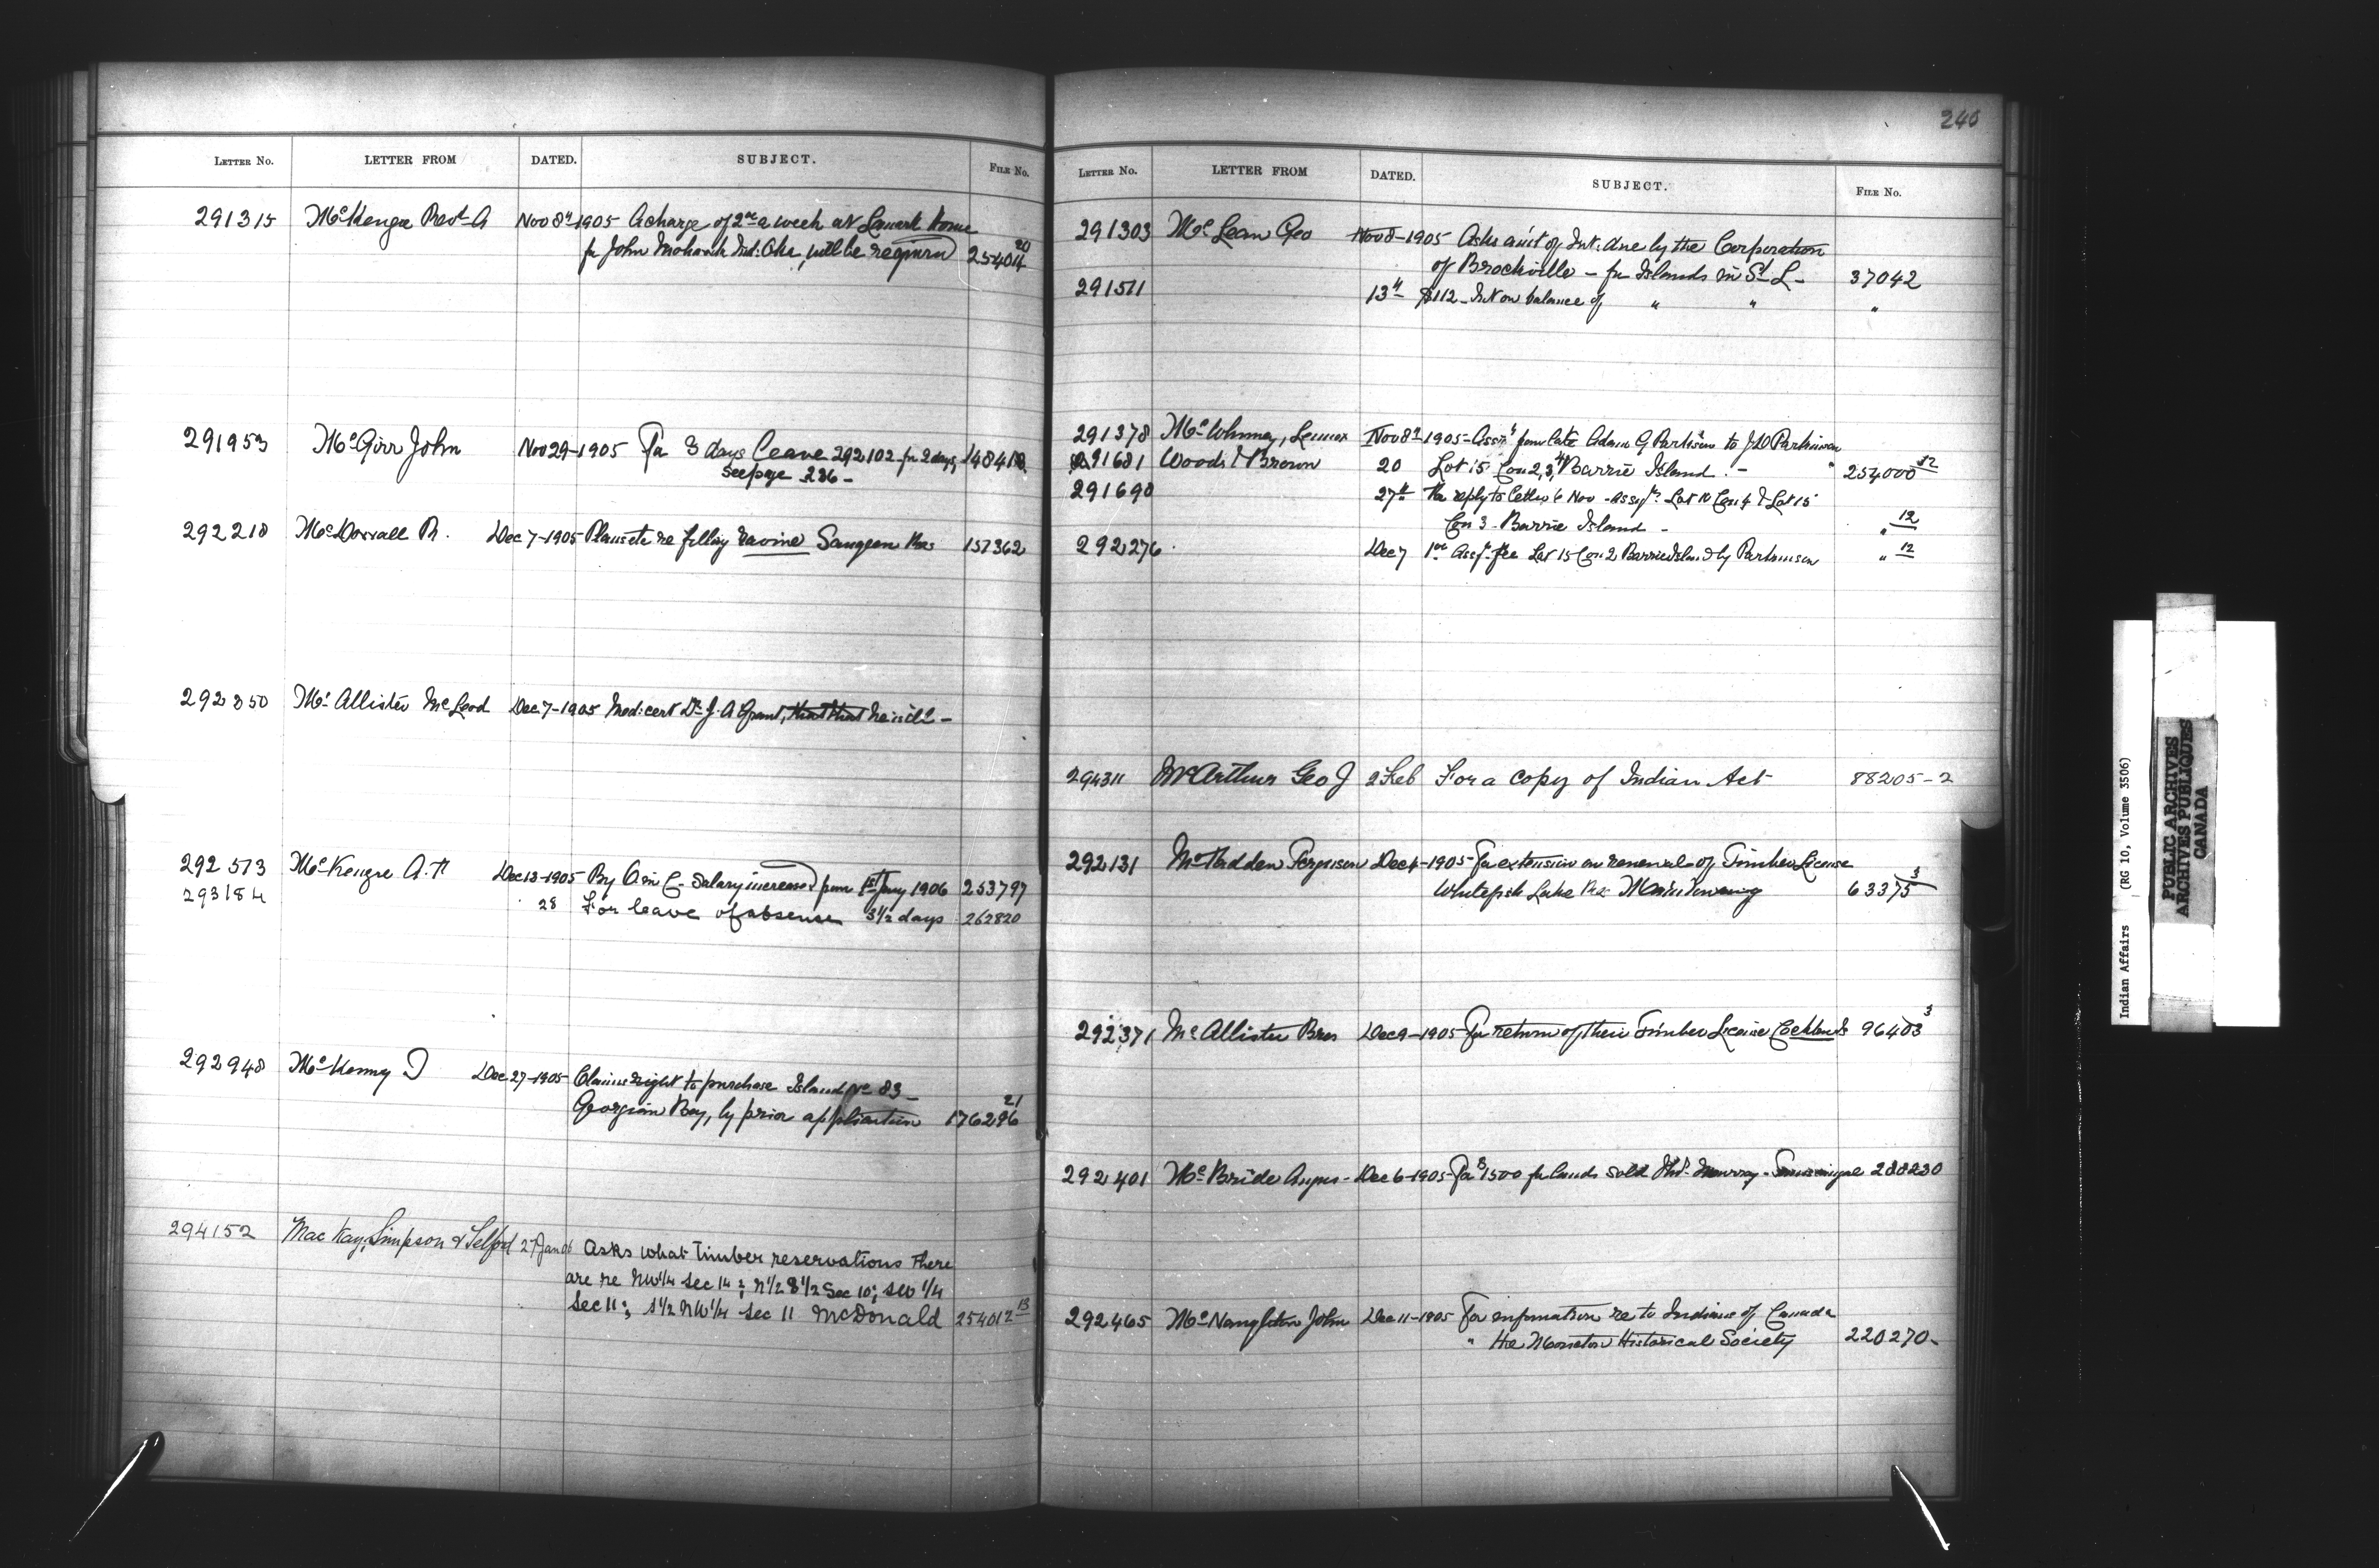 LETTER NO. LETTER FROM DATED. SUBJECT. FILE NO.
291315 McKenzie Revd A Nov 8th 1905 A charge of 2 a week at home
for John Mohawk Ind: Oka, will be required 254014 20
291953 McGirr John Nov 29-1905 For 3 days Leave 292102 for 2 days, 148418
See page 236-
292218 McDovall R. Dec 7-1905 Plans etc re filling ravine Saugeen Res 157362
292350 McAllister McLeod Dec 7-1905 Med: cert Dr J. A Grant, that that he is ill-
292573 McKenzie A. N Dec 13-1905 By O in C- Salary increased from 1st Jany 1906 253797
293184 28 For leave of absense 3 1/2 days 262820
292948 McKenny D Dec 27-1905 Claims right to purchase Island No 83-
Georgian Bay, by prior application 176296 21
294152 MacKay, Simpson & Telford 27 Jan 06 Asks what timber reservations there
are re NW 1/4 sec 14; N 1/2 & 1/2 Sec 10; SW 1/4
Sec 11; S 1/2 NW 1/4 Sec 11 McDonald 254012 13
240
LETTER NO. LETTER FROM DATED. SUBJECT. FILE NO.
291303 McLean Geo Nov 8-1905 Asks am't of Int: due by the Corporation
of Brockville - for Islands in St L- 37042
291511 13th $112- Int on balance of " " "
291378 McWhinney, Lennox Nov 8th 1905- Assnt from late Adam G Parkinson to J D Parkinson "
291681 Woods & Brown 20 Lot 15 Con 2, 3, 4 Barrie Island.- 254000 12
291690 27th For reply to letter 6 Nov - Assgt. Lot 10 Con 4 & Lot 15
Con 3- Barrie Island - " 12
292276. Dec 7 Assgt. fee Lot 15 Con 2 Barrie Island by Parkinson " 12
294311 McArthur Geo J 2 Feb For a copy of Indian Act 88205-2
292131 McFadden Ferguson Dec 4-1905- For extension or renewal of Timber License
Whitefish Lake Res 63375 3
292371 McAllister Bros Dec 9-1905- For return of their Timber License 96403 3
292401 McBride Angus- Dec 6-1905- For $1500 for lands sold Thos Murray- Temiscamingue 288230
292465 McNaughton John Dec 11-1905 For information re to Indians of Canada
" the Moncton Historical Society 220270-
Indian Affairs (RG 10, Volume 3506)
PUBLIC ARCHIVES
ARCHIVES PUBLIQUES
CANADA